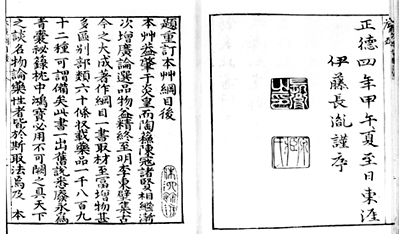 正德四年甲午夏至日東涯
伊藤長胤謹序
題重訂本艸綱目後
本艸蓋肇于炎皇而陶蘇陳寇諸賢相繼漸
次增廣論選品物益精終至明李東璧集古
今之大成著作綱目一書取材至富增物甚
多區別部類六十條收載藥品一千八百九
十二種可謂備矣此書一出舊說悉廢永爲
青囊祕籙枕中鴻寶必用不可闕之真天下
之談名物論藥性者皆於斯取法焉及 本